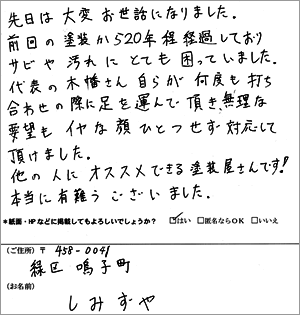 先日は大変お世話になりました。
前回の塗装から20年程経過しており
サビや汚れにとても困っていました。
代表の木幡さん自らが何度も打ち
合わせの際に足を運んで頂き無理な
要望もイヤな顔ひとつせず対応して
頂けました。
他の人にオススメできる塗装屋さんです!
本当に有難うございました。
*紙面・HPなどに掲載してもよろしいでしょうか? ☑はい □匿名ならOK □いいえ
(ご住所) 〒 458-0041
緑区 鳴子町
(お名前)
しみずや